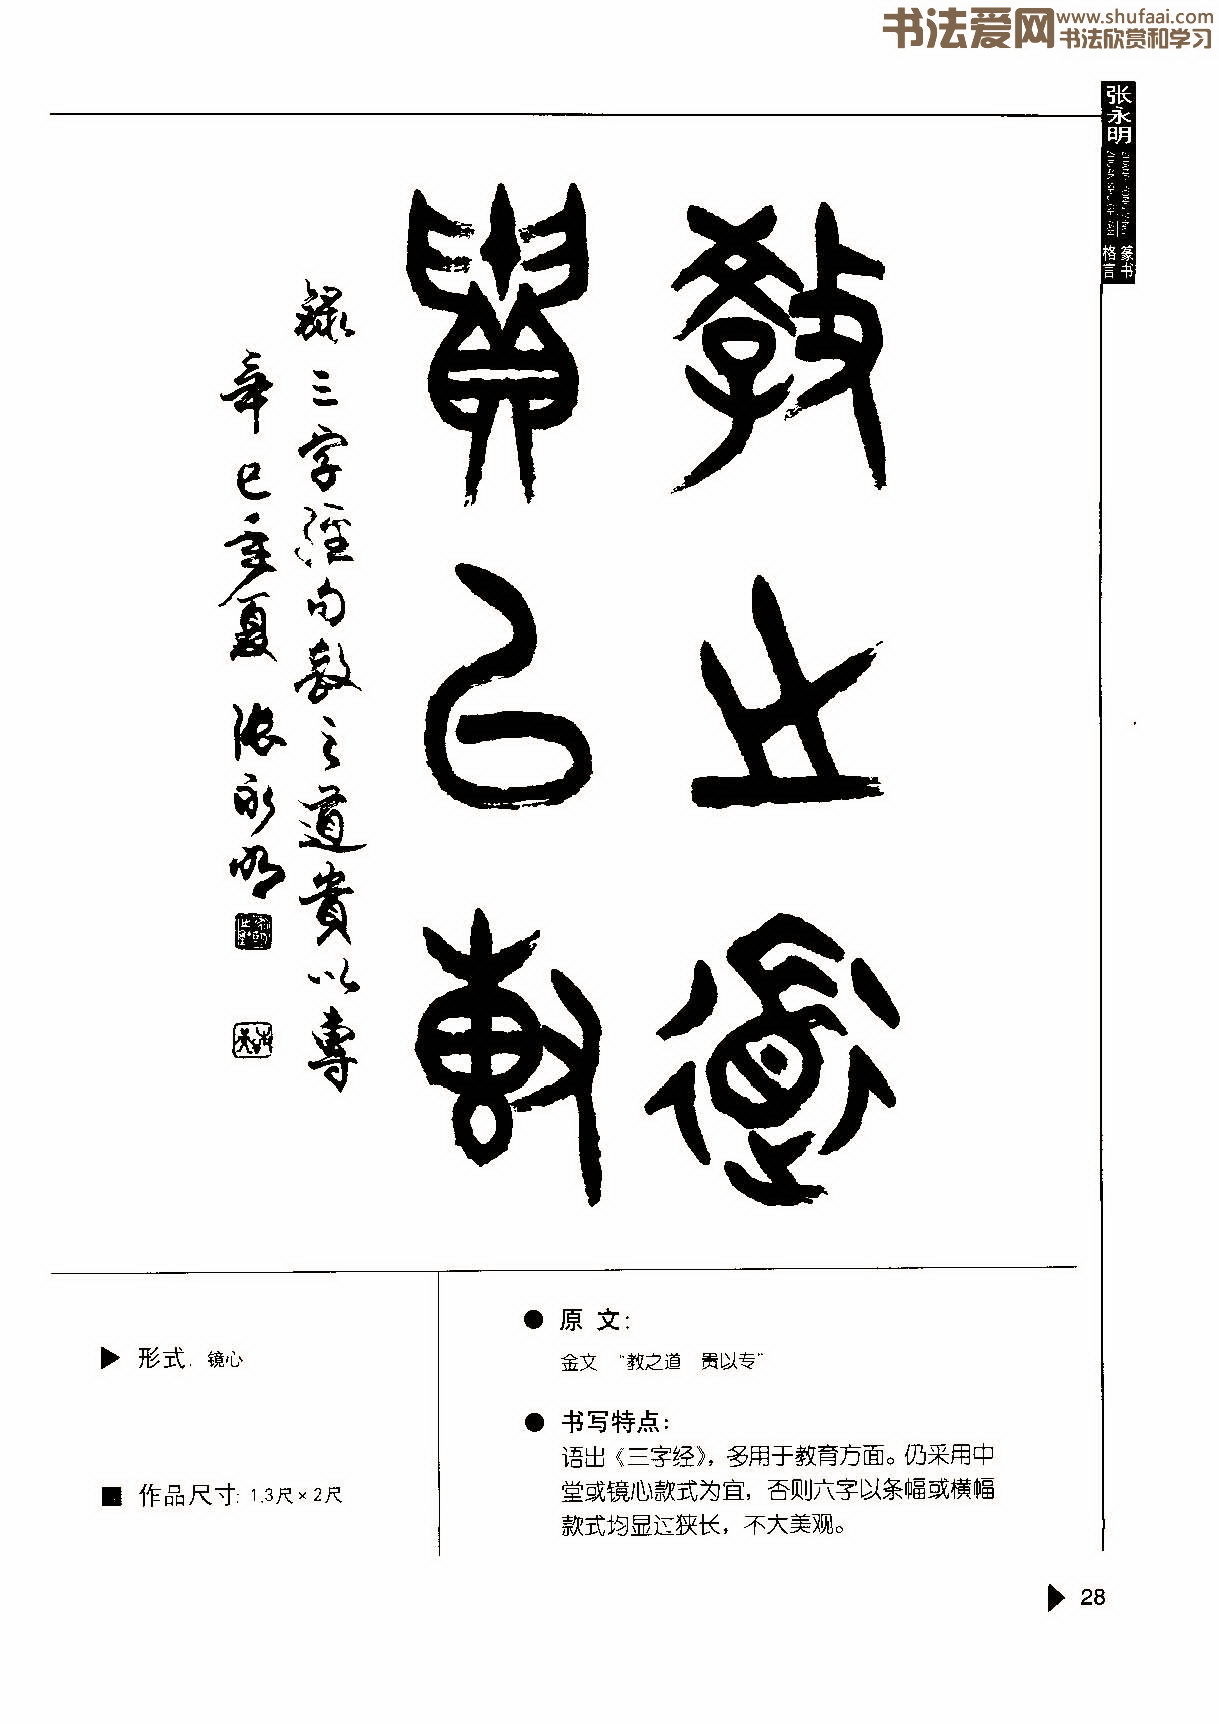 书法爱网 www.shufaai.com
书法欣赏和学习
张永明
篆书
格言
教之道
貴以專
錄三字經句教之道貴以專
辛巳年夏 張永明
▶ 形式: 镜心
■ 作品尺寸: 1.3尺×2尺
● 原 文:
金文 “教之道 贵以专”
● 书写特点:
语出《三字经》，多用于教育方面。仍采用中
堂或镜心款式为宜，否则六字以条幅或横幅
款式均显过狭长，不大美观。
▶ 28